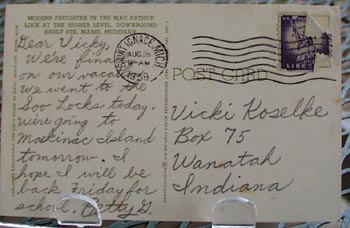 MODERN FREIGHTER IN THE MAC ARTHUR
LOCK AT THE HIGHER LEVEL, DOWNBOUND
SAULT STE. MARIE, MICHIGAN
Dear Vicky,
We're final
on our vaca
We went to the
Soo Locks today.
We're going to
Mackinac Island
tomorrow. I
hope I will be
back Friday for
school. Betty G.
SAINT IGNACE, MICH.
AUG 26
AM
1958
POST CARD
Vicki Koselke
Box 75
Wanatah
Indiana